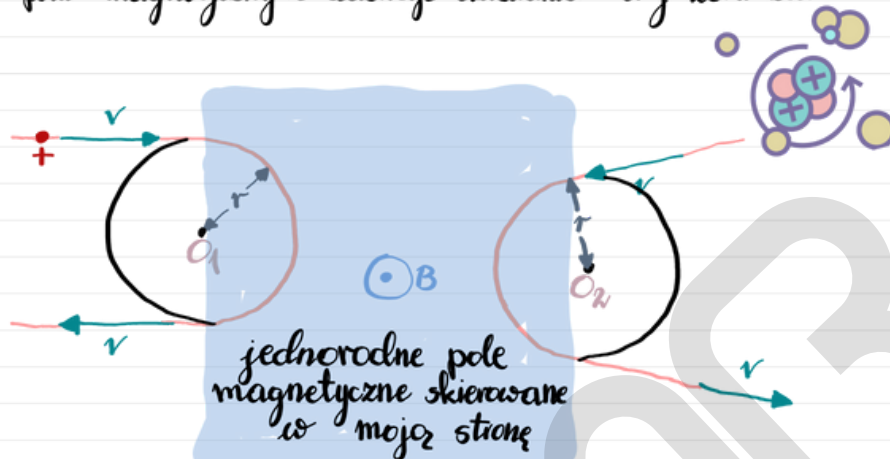 v
+
r
O₁
v
B
v
r
O₂
v
jednorodne pole
magnetyczne skierowane
w moją stronę
+
+